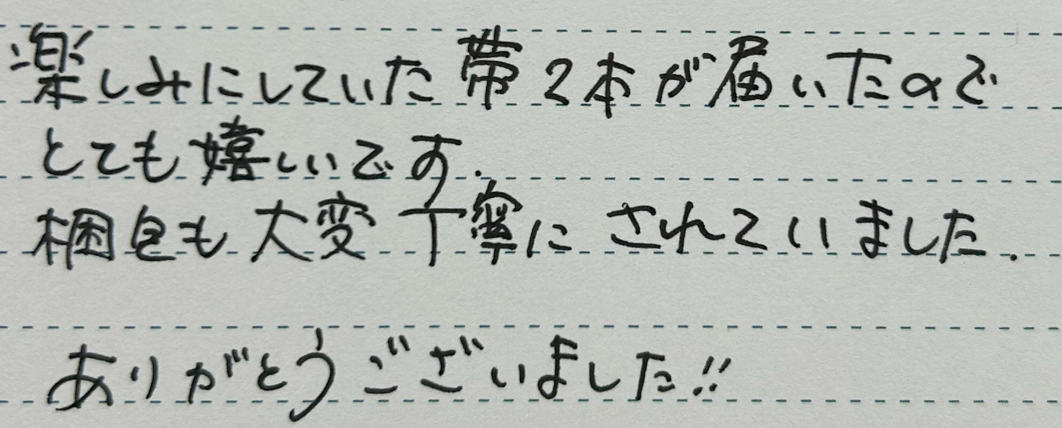 楽しみにしていた帯2本が届いたので
とても嬉しいです.
梱包も大変丁寧にされていました.
ありがとうございました!!